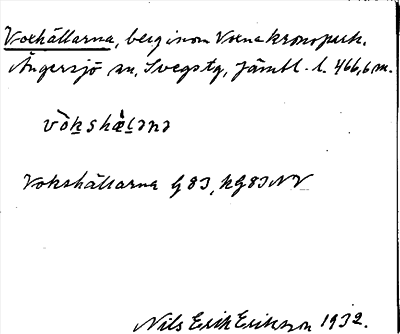 Voxhällarna, berg inom Voxna kronopark.
Ängersjö sn, Svegs tg, Jämtl. l. 466,6 m.
vòkshæ̀ḷənə
Vokshällarna G 83, kG83NV
Nils Erik Erikson 1932.